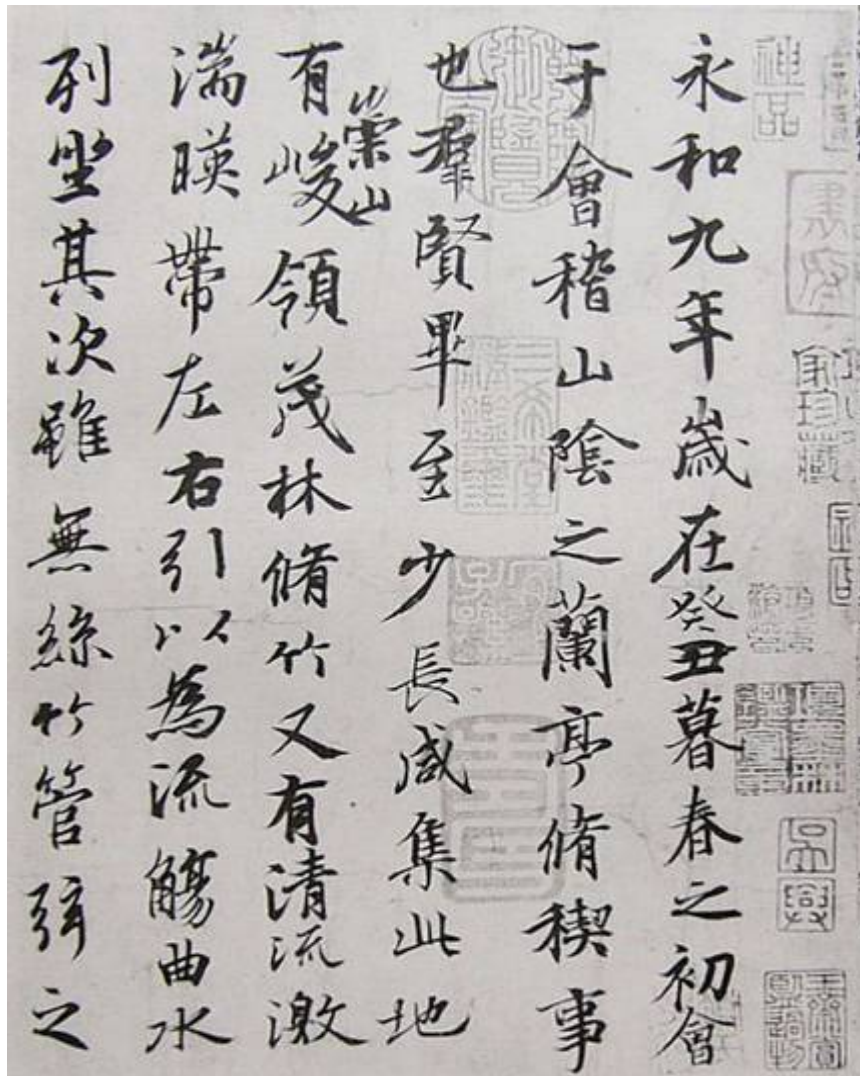 神品
吳興
永和九年歲在癸丑暮春之初會
于會稽山陰之蘭亭脩稧事
也羣賢畢至少長咸集此地
三希堂精鑑璽
有崇山峻領茂林脩竹又有清流激
湍暎帶左右引以為流觴曲水
列坐其次雖無絲竹管弦之